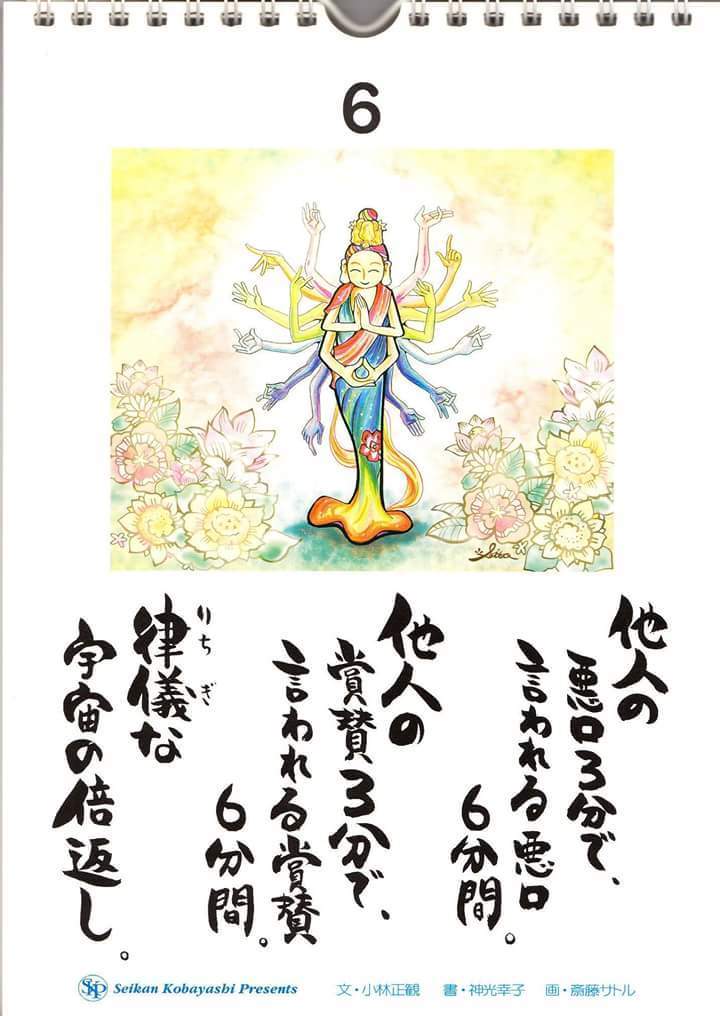 6
他人の
悪口3分で、
言われる悪口
6分間。
他人の
賞賛3分で、
言われる賞賛
6分間。
律儀な
りちぎ
宇宙の倍返し。
SKP Seikan Kobayashi Presents 文・小林正観 書・神光幸子 画・斎藤サトル